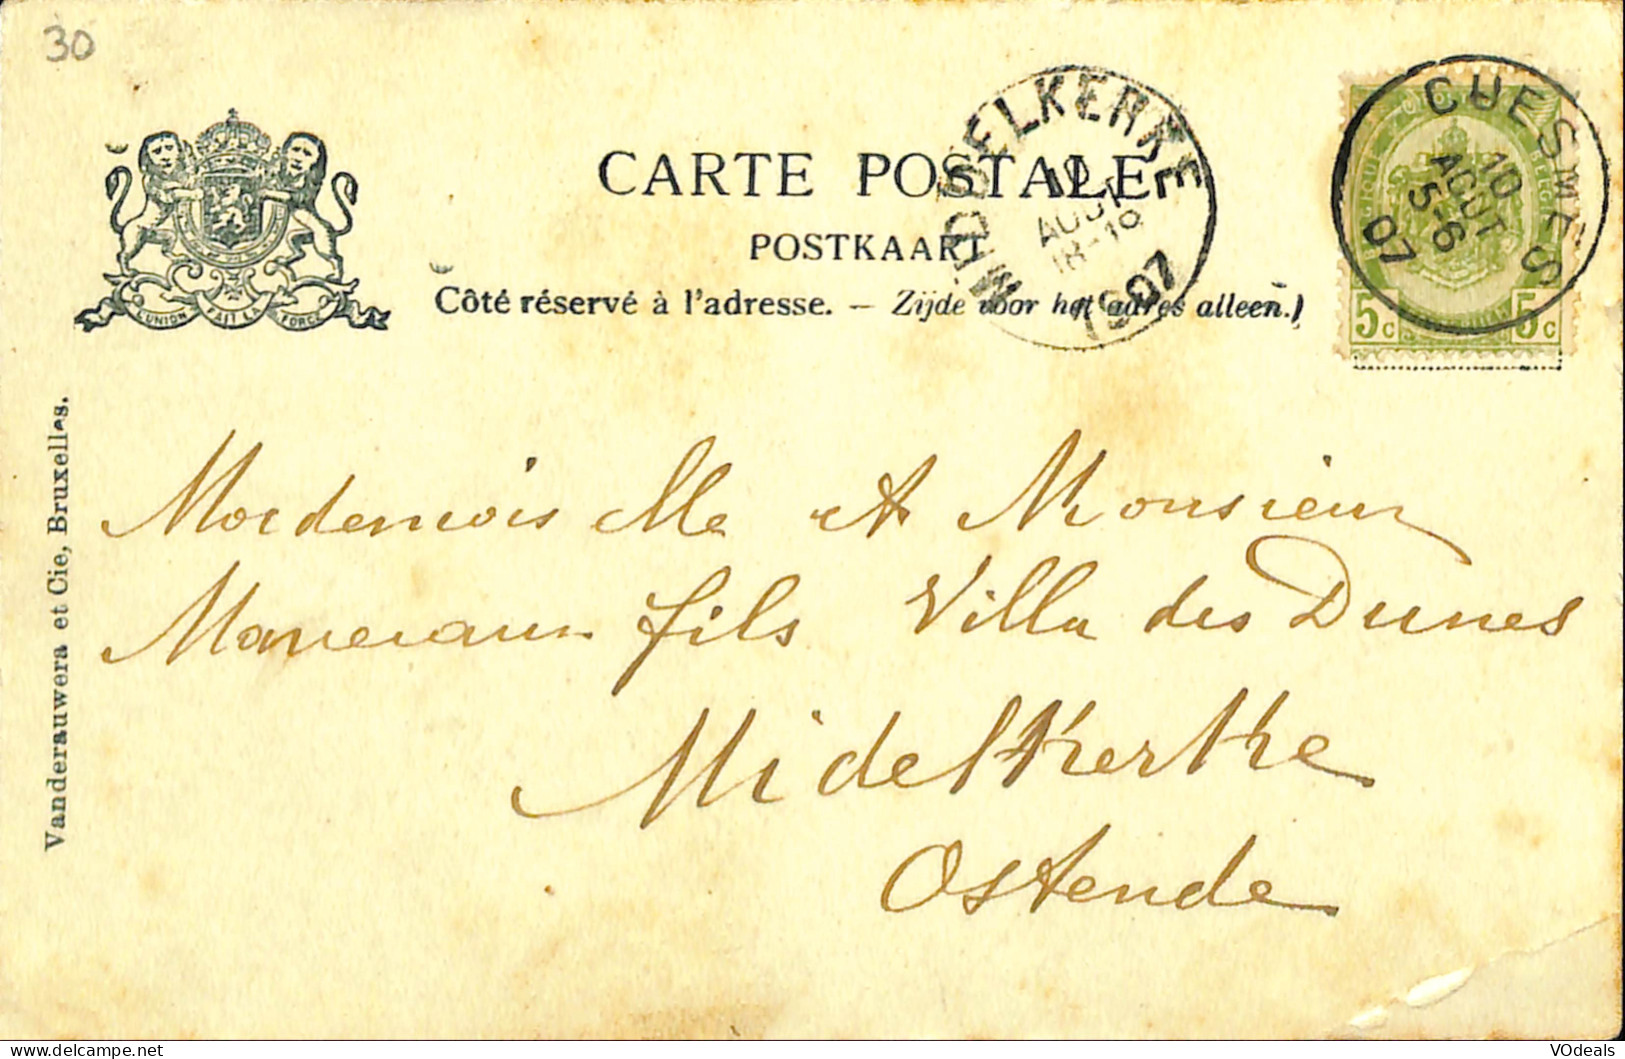 30
CARTE POSTALE
POSTKAART
Côté réservé à l'adresse. — Zijde voor het adres alleen.)
L'UNION FAIT LA FORCE
MIDDELKERKE
AOUT
18-19
1907
CUESMES
10
AOUT
5-6
07
5c 5c
Vanderauwera et Cie, Bruxelles.
Mordemoiselle et Monsieur
fils Villa des Dunes
Midelkerke
Ostende
VOdeals